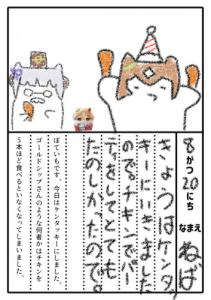 8がつ20にち
なまえ ねば
きょうはケンタッ
キーにいきました
のでチキンでパー
ティをしてとても
たのしかったので。
ぽていもです。今日はケンタッキーにしました。
ゴールドシップさんのような何者かはチキンを
5本ほど食べるといなくなってしまいました。